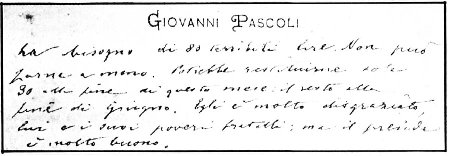 GIOVANNI PASCOLI
ha bisogno di 80 terribili lire. Non può
farne a meno. Potrebbe restituirne sole
30 alla fine di questo mese: il resto alla
fine di Giugno. Egli è molto disgraziato,
lui e i suoi poveri fratelli; ma il preside
è molto buono.